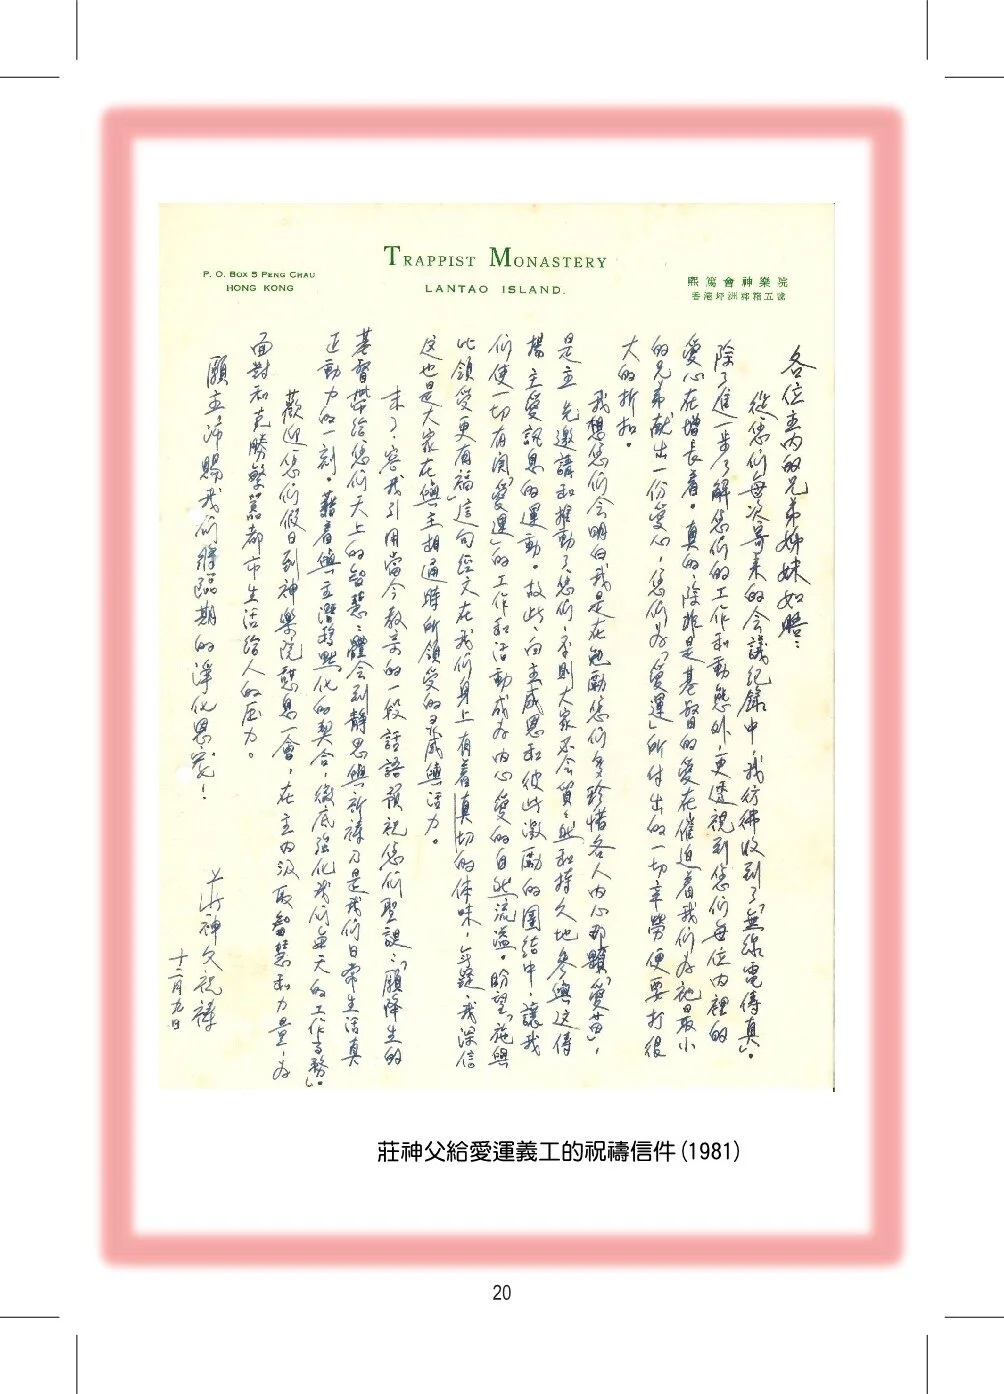 TRAPPIST MONASTERY
LANTAO ISLAND.
P. O. BOX 5 PENG CHAU
HONG KONG
熙篤會神樂院
香港坪洲郵箱五號
各位主內的兄弟姊妹如晤：
從您们每次寄来的会議紀錄中，我仿彿收到了「無線電傳真」。
除了進一步了解您们的工作和動態外，更透視到您们每位内裡的
愛心在增長着。真的，除非是基督的愛在催迫着我们为祂最小
的兄弟献出一份愛心，您们为「愛運」所付出的一切辛勞便要打很
大的折扣。
我想您们会明白我是在勉勵您们多珍惜各人内心那顆「愛苗」，
是主先邀請和推動了您们，否則大家不会質質然和持久地参與这傳
揚主愛訊息的運動。故此，向主感恩和彼此激勵的團結中，讓我
们使一切有関「愛運」的工作和活動成为内心愛的自然流溢。盼望「施與
比領受更有福」這句經文在我们身上有着真切的体味，無疑，我深信
这也是大家在與主相通時所領受的靈感與活力。
末了，容我引用當今教宗的一段話語預祝您们聖誕：「願降生的
基督帶给您们天上的智慧：體会到静思與祈禱乃是我们日常生活真
正動力的一刻。藉着與主潛移默化的契合，徹底強化我们每天的工作与務」。
歡迎您们假日到神樂院憩息一會，在主内汲取智慧和力量，为
面對和克勝繁嚣都市生活给人的压力。
願主沛賜我们將臨期的淨化恩寵！
莊神父祝禱
十二月九日
莊神父給愛運義工的祝禱信件(1981)
20